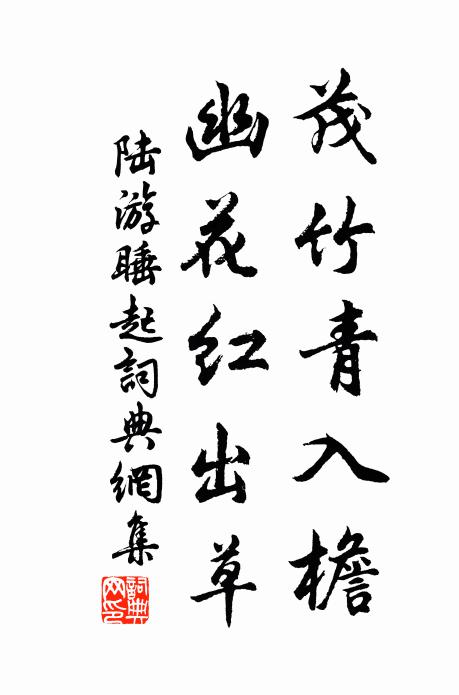 茂竹青入檐
幽花红出草
陆游睡起詞典網集
詞典網印